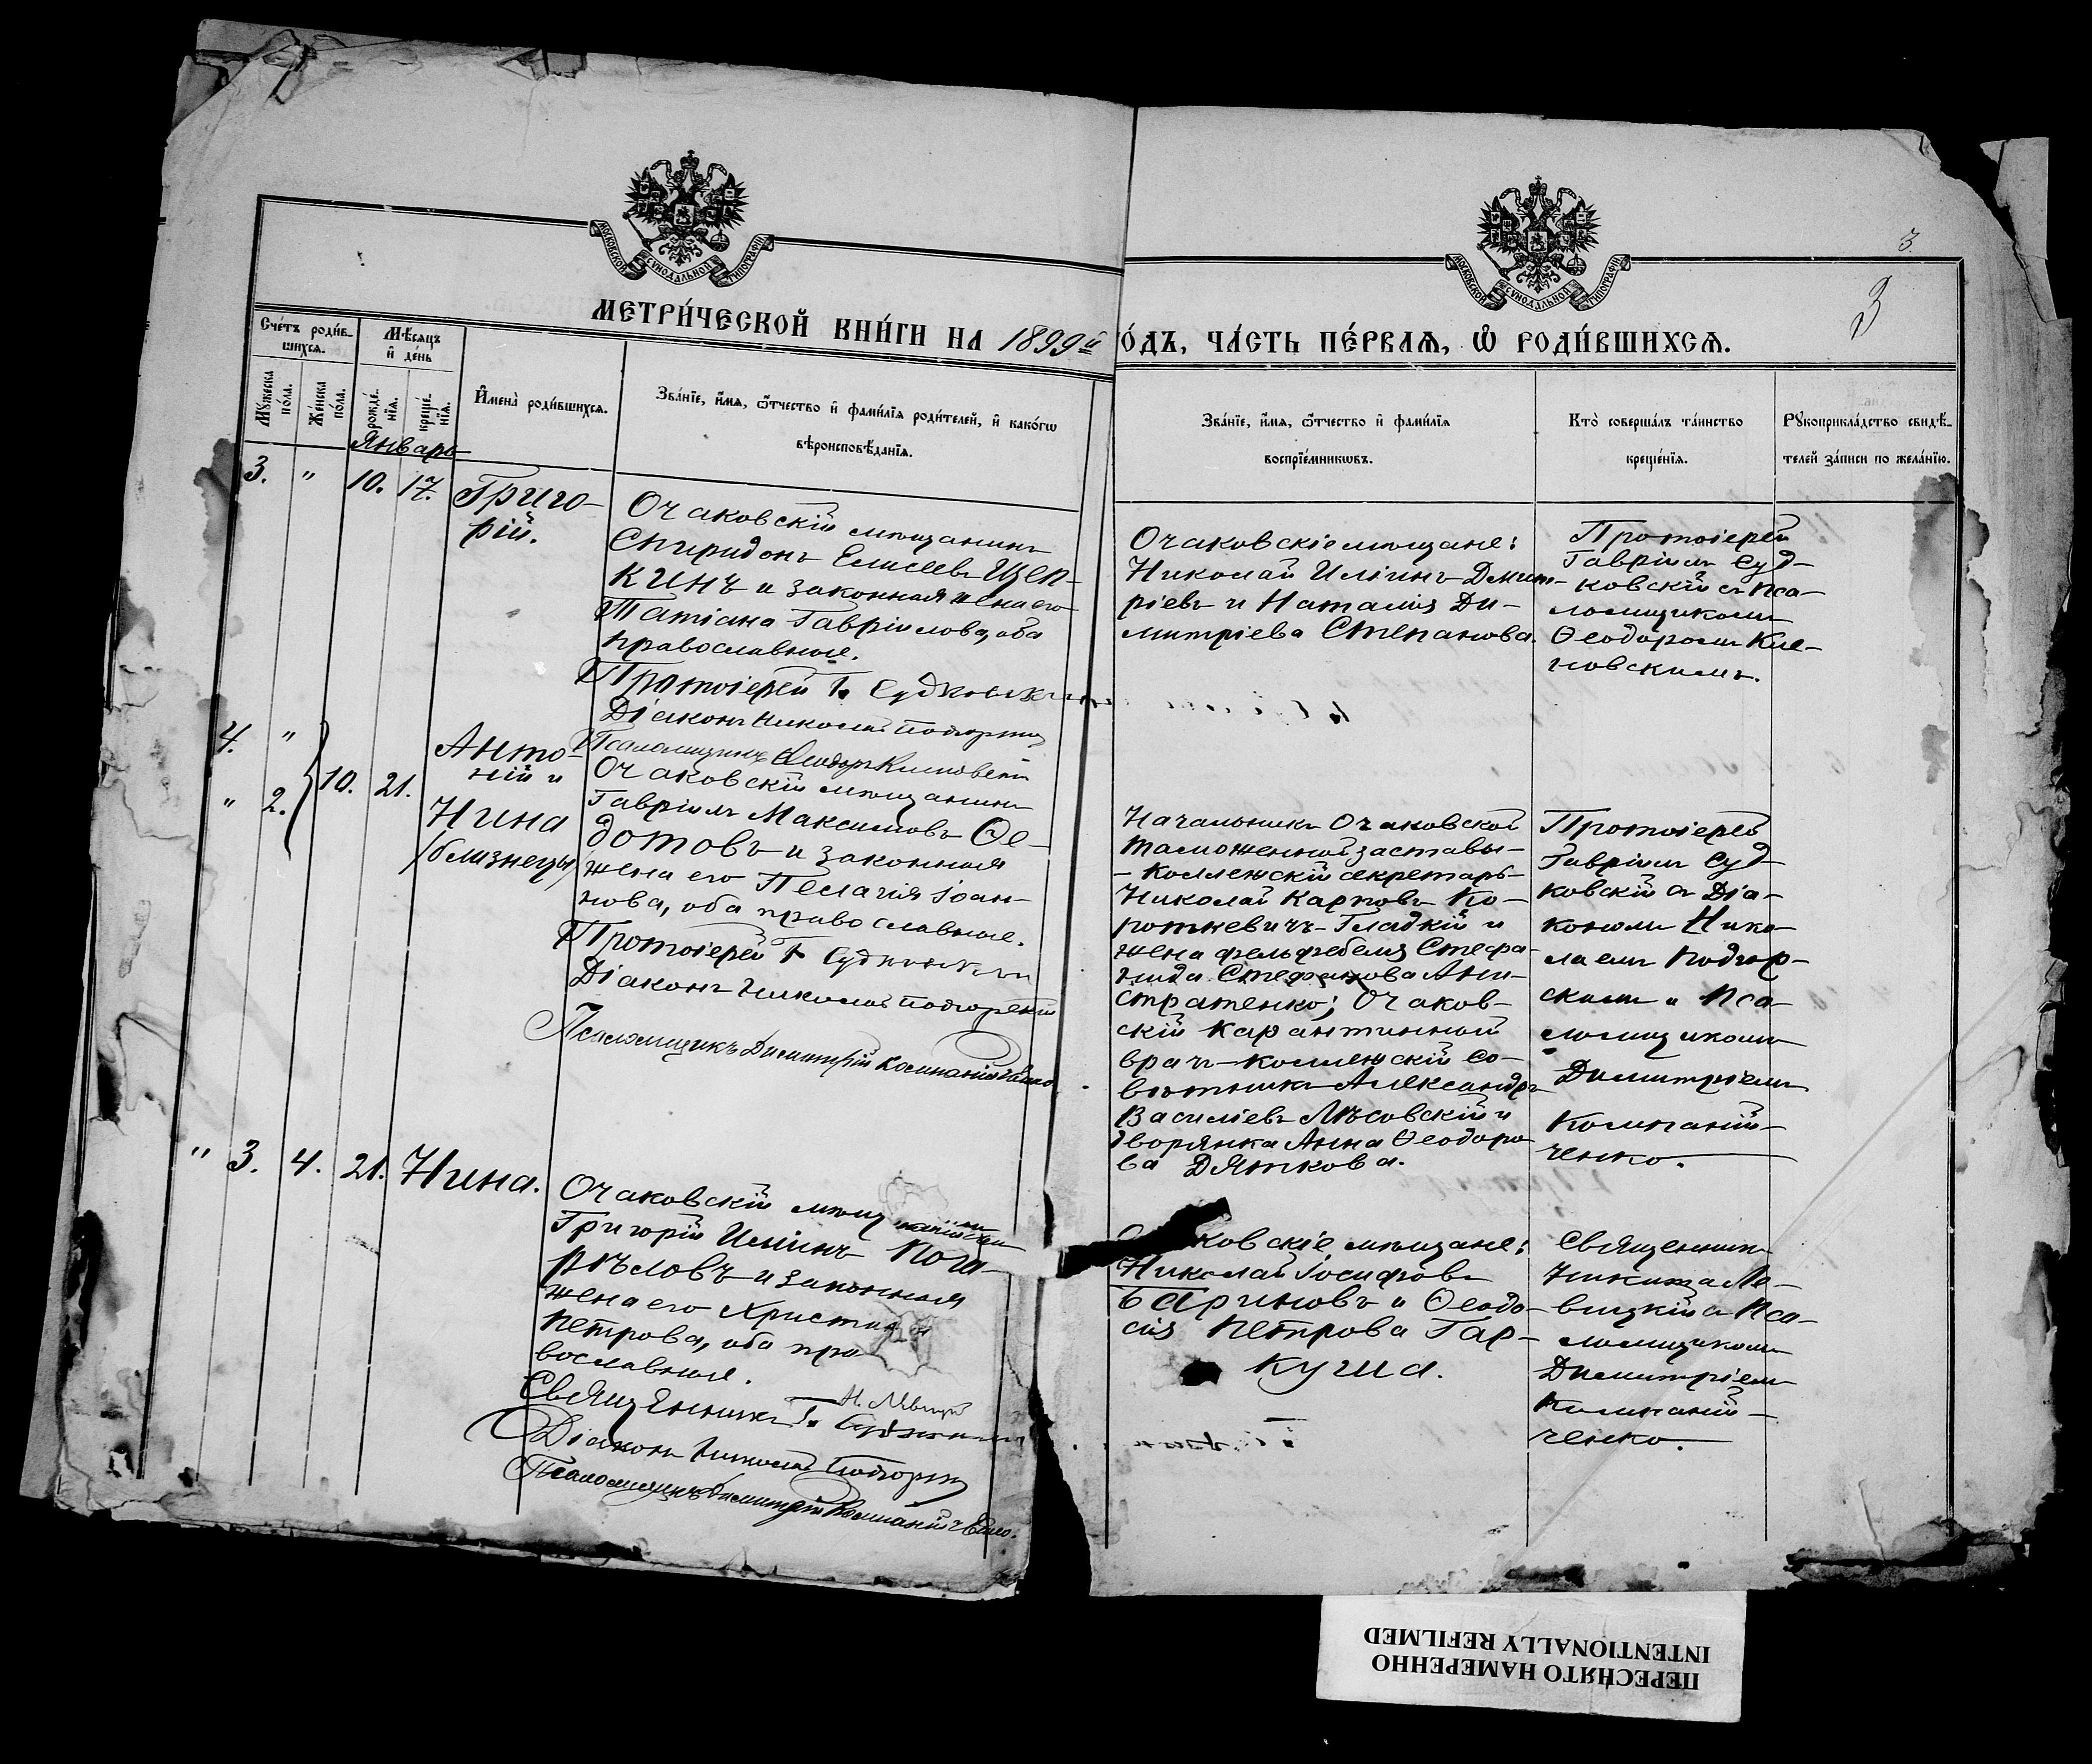 МОСКОВСКОЙ СѴНОДАЛЬНОЙ ТИПОГРАФІИ
МОСКОВСКОЙ СѴНОДАЛЬНОЙ ТИПОГРАФІИ
3.
3
МЕТРИ́ЧЕСКОЙ КНИ́ГИ НА 1899й
О́ДЪ, ЧА́СТЬ ПЕ́РВАѦ, Ѡ҆ РОДИ́ВШИХСѦ.
Сче́тъ роди́в-
шихсѧ.
Мѣ́сѧцъ
и҆ де́нь
Мꙋ́жеска
по́ла.
Же́нска
по́ла.
рожде́-
нїѧ.
креще́-
нїѧ.
И҆мена̀ роди́вшихсѧ.
Зва́нїе, и҆́мѧ, ѻ҆́тчество и҆ фами́лїѧ роди́телей, и҆ како́гѡ
вѣроисповѣ́данїѧ.
Зва́нїе, и҆́мѧ, ѻ҆́тчество и҆ фами́лїѧ
воспрїе́мникѡвъ.
Кто̀ соверша́лъ та́инство
креще́нїѧ.
Рꙋкоприкла́дство свидѣ́-
телей за́писи по жела́нїю.
Январь
3. " 10. 17.
Григо-
рій.
Очаковскій мѣщанинъ
Спиридонъ Елисеевъ Щеп-
кинъ и законная жена его
Татіана Гавріилова, оба
православные.
Протоіерей Г. Судковскій
Діаконъ Николай Подгорскій
Псаломщикъ Ѳеодоръ
Очаковскіе мѣщане:
Николай Иліинъ Дмит-
ріевъ и Наталія Ди-
митріева Степанова.
Протоіерей
Гавріилъ Суд-
ковскій съ Пса-
ломщикомъ
Ѳеодоромъ Кли-
новскимъ.
4. "
" 2. 10. 21.
Анто-
ній и
Нина
/близнецы/
Очаковскій мѣщанинъ
Гавріилъ Максимовъ Ѳе-
дотовъ и законная
жена его Пелагія Іоан-
нова, оба православные.
Протоіерей Г. Судковскій
Діаконъ Николай Подгорскій
Псаломщикъ Димитрій Компанійченко
Начальникъ Очаковской
таможенной заставы-
- Коллежскій секретарь
Николай Карповъ Ко-
роткевичъ-Гладкій и
жена фельдфебеля Стефа-
нида Стефанова Ани-
стратенко; Очаков-
скій Карантинный
врачъ-Коллежскій Со-
вѣтникъ Александръ
Василіевъ Лѣсовскій и
дворянка Анна Ѳеодоро-
ва Дяткова.
Протоіерей
Гавріилъ Суд-
ковскій съ Діа-
кономъ Нико-
лаемъ Подгор-
скимъ и Пса-
ломщикомъ
Димитріемъ
Компаній-
ченко.
" 3. 4. 21. Нина.
Очаковскій мѣщанинъ
Григорій Иліинъ Пога-
рѣловъ и законная
жена его Христина
Петрова, оба пра-
вославные.
Священникъ Н. Левицкій
Діаконъ Николай Подгорскій
Псаломщикъ Димитрій Компанійченко.
ковскіе мѣщане:
Николай Іосифовъ
Бариновъ и Ѳеодо-
сія Петрова Гар-
куша.
Священникъ
Никита Ле-
вицкій съ Пса-
ломщикомъ
Димитріемъ
Компаній-
ченко.
ПЕРЕСНЯТО НАМЕРЕННО
INTENTIONALLY REFILMED